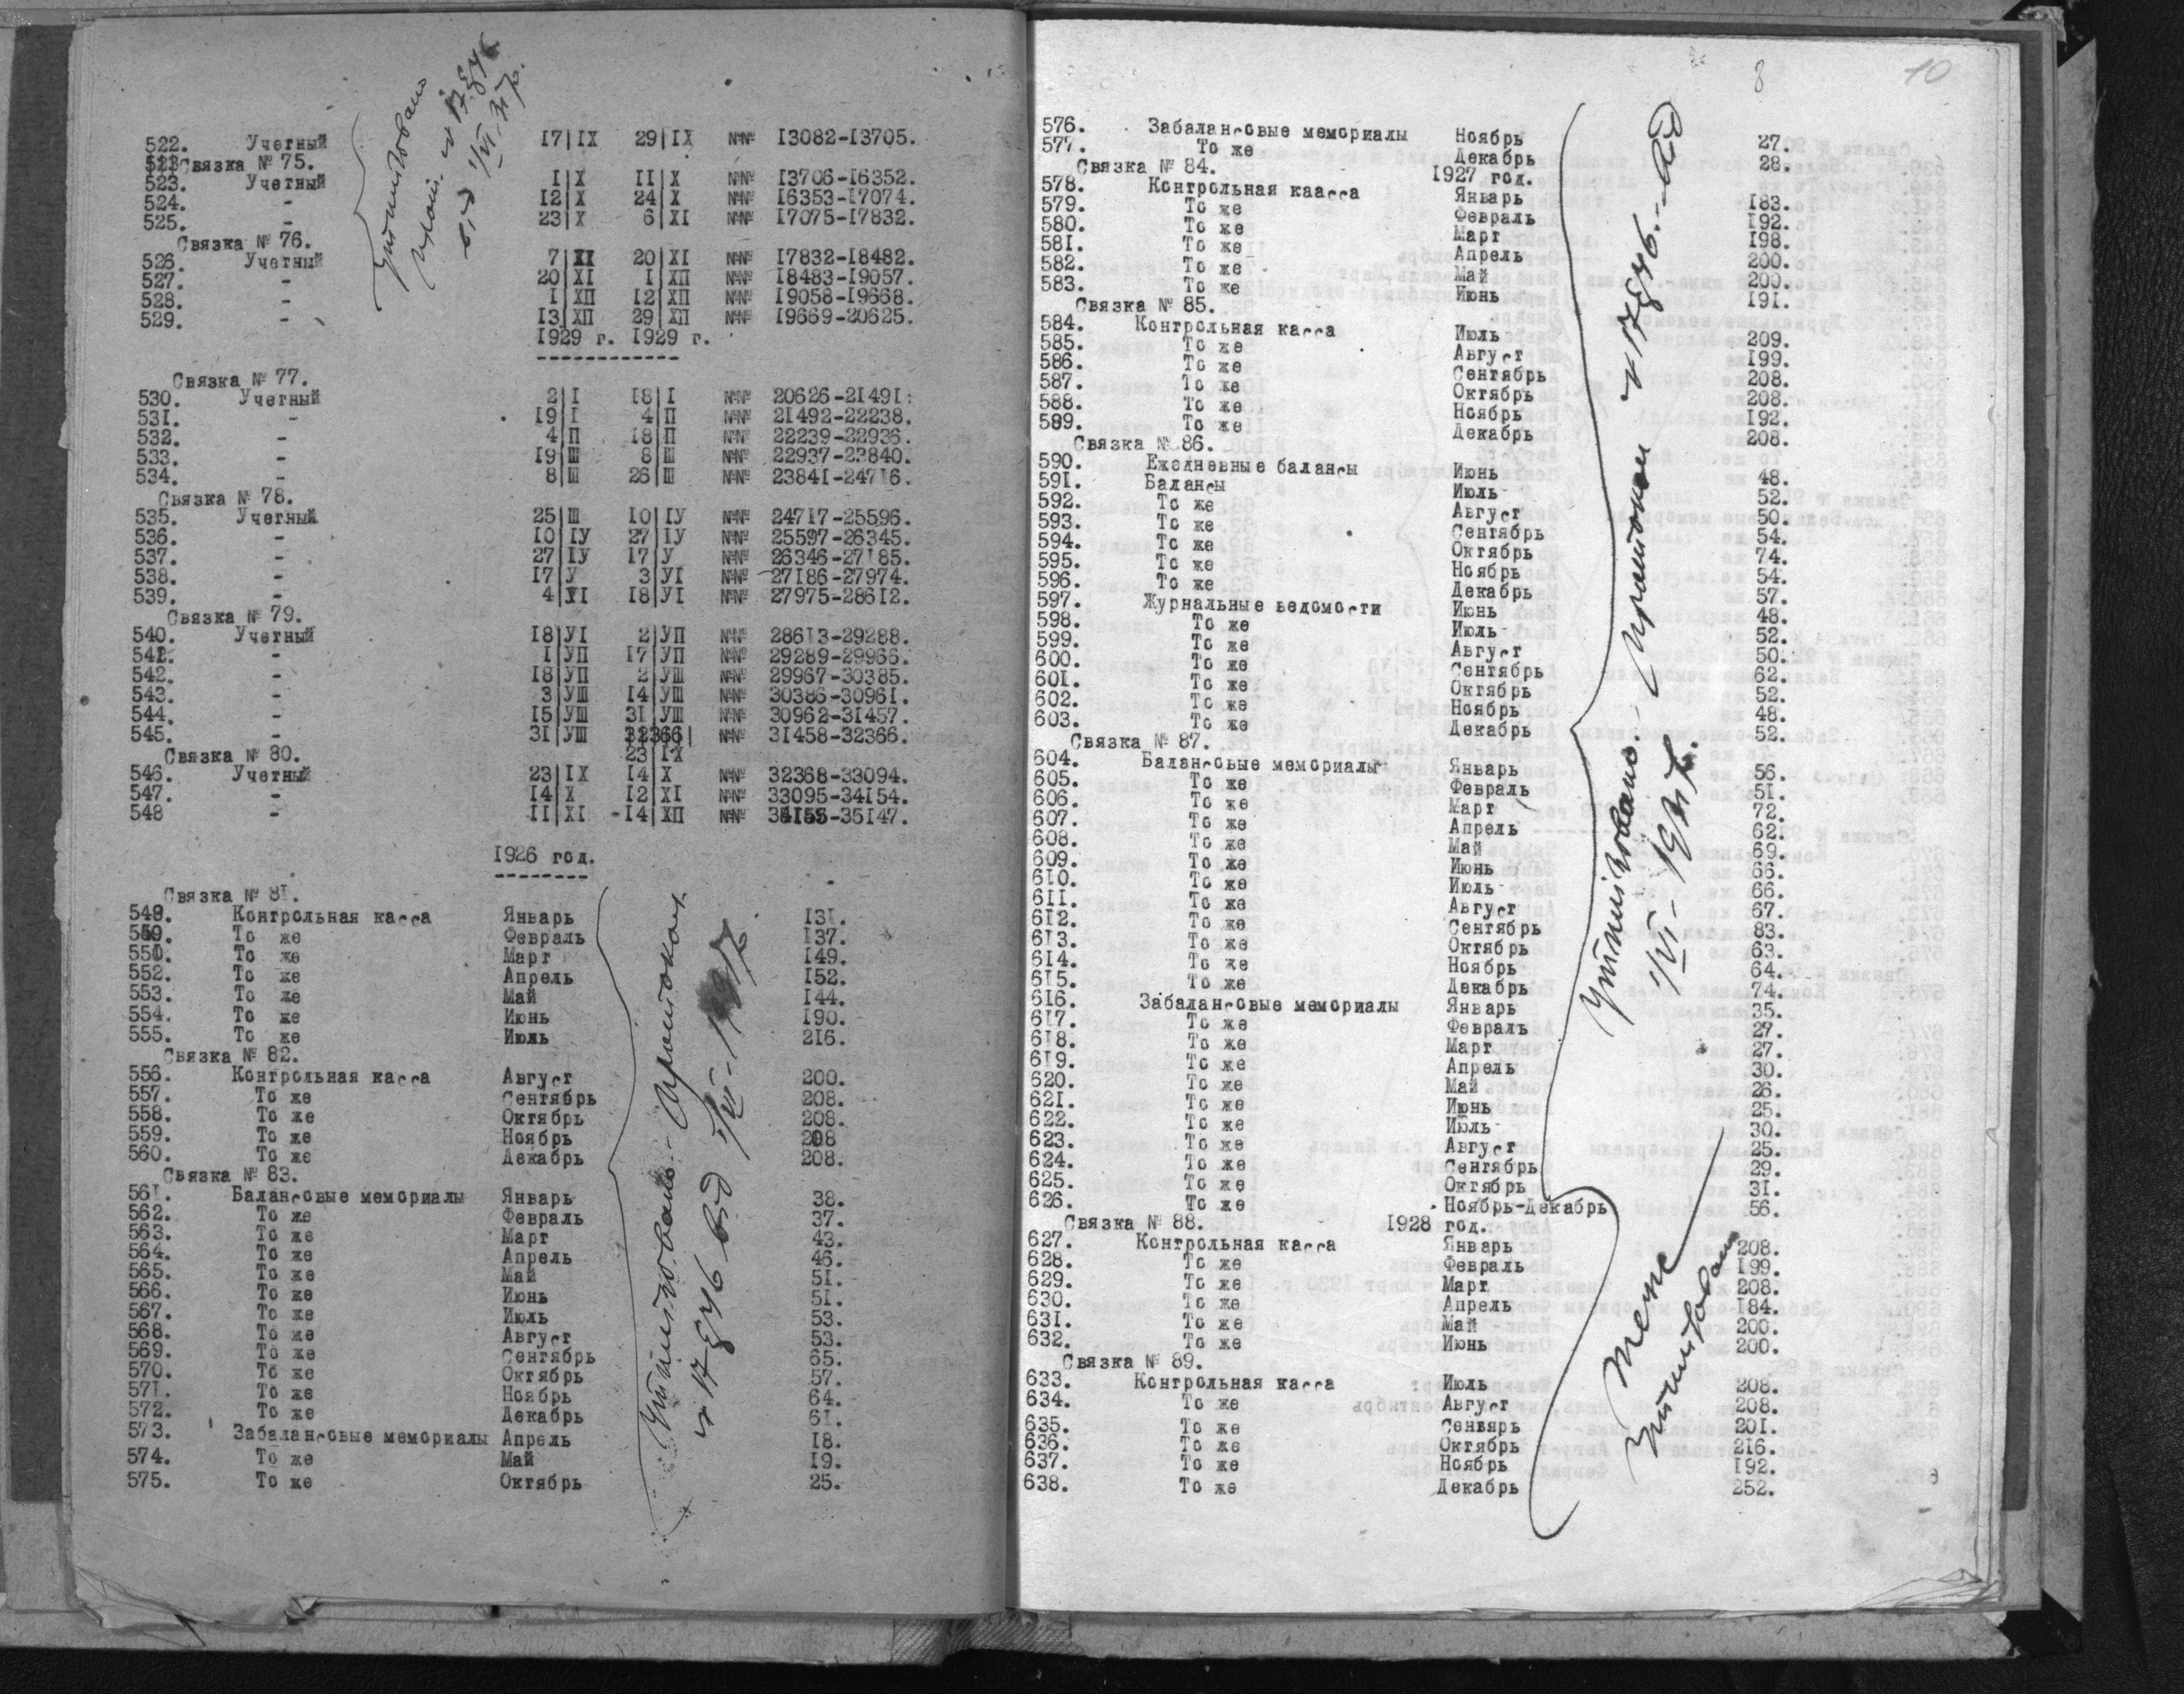 522. Учетный 17|IX 29|IX №№ 13082-13705.
Связка № 75.
523. Учетный I|X II|X №№ 13706-16352.
524. - 12|X 24|X №№ 16353-17074.
525. - 23|X 6|XI №№ 17075-17832.
Связка № 76.
526. Учетный 7|XI 20|XI №№ 17832-18482.
527. - 20|XI I|ХП №№ 18483-19057.
528. - I|ХП 12|ХП №№ 19058-19668.
529. - 13|ХП 29|ХП №№ 19669-20625.
1929 г. 1929 г.
------------
Связка № 77.
530. Учетный 2|I 18|I №№ 20626-21491.
531. - 19|I 4|П №№ 21492-22238.
532. - 4|П 18|П №№ 22239-22936.
533. - 19|Ш 8|Ш №№ 22937-23840.
534. - 8|Ш 26|Ш №№ 23841-24716.
Связка № 78.
535. Учетный 25|Ш 10|IУ №№ 24717-25596.
536. - 10|IУ 27|IУ №№ 25597-26345.
537. - 27|IУ 17|У №№ 26346-27185.
538. - 17|У 3|УI №№ 27186-27974.
539. - 4|УI 18|УI №№ 27975-28612.
Связка № 79.
540. Учетный 18|УI 2|УП №№ 28613-29288.
541. - I|УП 17|УП №№ 29289-29966.
542. - 18|УП 2|УШ №№ 29967-30385.
543. - 3|УШ 14|УШ №№ 30386-30961.
544. - 15|УШ 31|УШ №№ 30962-31457.
545. - 31|УШ №№ 31458-32366.
Связка № 80. 23|IX
546. Учетный 23|IX 14|X №№ 32368-33094.
547. - 14|X 12|XI №№ 33095-34154.
548 - II|XI -14|ХП №№ 34155-35147.
1926 год.
--------
Связка № 81.
549. Контрольная касса Январь 131.
То же Февраль 137.
То же Март 149.
552. То же Апрель 152.
553. То же Май 144.
554. То же Июнь 190.
555. То же Июль 216.
Связка № 82.
556. Контрольная касса Август 200.
557. То же Сентябрь 208.
558. То же Октябрь 208.
559. То же Ноябрь 208
560. То же Декабрь 208.
Связка № 83.
561. Балансовые мемориалы Январь 38.
562. То же Февраль 37.
563. То же Март 43.
564. То же Апрель 46.
565. То же Май 51.
566. То же Июнь 51.
567. То же Июль 53.
568. То же Август 53.
569. То же Сентябрь 65.
570. То же Октябрь 57.
571. То же Ноябрь 64.
572. То же Декабрь 61.
573. Забалансовые мемориалы Апрель 18.
574. То же Май 19.
575. То же Октябрь 25.
8 10
576. Забалансовые мемориалы Ноябрь 27.
577. То же Декабрь 28.
Связка № 84. 1927 год.
578. Контрольная каасса Январь 183.
579. То же Февраль 192.
580. То же Март 198.
581. То же Апрель 200.
582. То же Май 200.
583. То же Июнь 191.
Связка № 85.
584. Контрольная касса Июль 209.
585. То же Август 199.
586. То же Сентябрь 208.
587. То же Октябрь 208.
588. То же Ноябрь 192.
589. То же Декабрь 208.
Связка № 86.
590. Ежедневные балансы Июнь 48.
591. Балансы Июль 52.
592. То же Август 50.
593. То же Сентябрь 54.
594. То же Октябрь 74.
595. То же Ноябрь 54.
596. То же Декабрь 57.
597. Журнальные ведомости Июнь 48.
598. То же Июль 52.
599. То же Август 50.
600. То же Сентябрь 62.
601. То же Октябрь 52.
602. То же Ноябрь 48.
603. То же Декабрь 52.
Связка № 87.
604. Балансовые мемориалы Январь 56.
605. То же Февраль 51.
606. То же Март 72.
607. То же Апрель 62.
608. То же Май 69.
609. То же Июнь 66.
610. То же Июль 66.
611. То же Август 67.
612. То же Сентябрь 83.
613. То же Октябрь 63.
614. То же Ноябрь 64.
615. То же Декабрь 74.
616. Забалансовые мемориалы Январь 35.
617. То же Февраль 27.
618. То же Март 27.
619. То же Апрель 30.
620. То же Май 26.
621. То же Июнь 25.
622. То же Июль 30.
623. То же Август 25.
624. То же Сентябрь 29.
625. То же Октябрь 31.
626. То же Ноябрь-Декабрь 56.
Связка № 88. 1928 год.
627. Контрольная касса Январь 208.
628. То же Февраль 199.
629. То же Март 208.
630. То же Апрель 184.
631. То же Май 200.
632. То же Июнь 200.
Связка № 89.
633. Контрольная касса Июль 208.
634. То же Август 208.
635. То же Сенвярь 201.
636. То же Октябрь 216.
637. То же Ноябрь 192.
638. То же Декабрь 252.